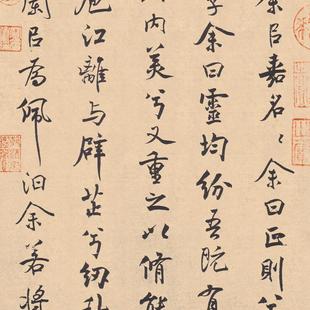 余㠯嘉名〻余曰正則兮
字余曰靈均紛吾既有
内美兮又重之以脩能
扈江離与辟芷兮紉秋
蘭㠯為佩汩余若將